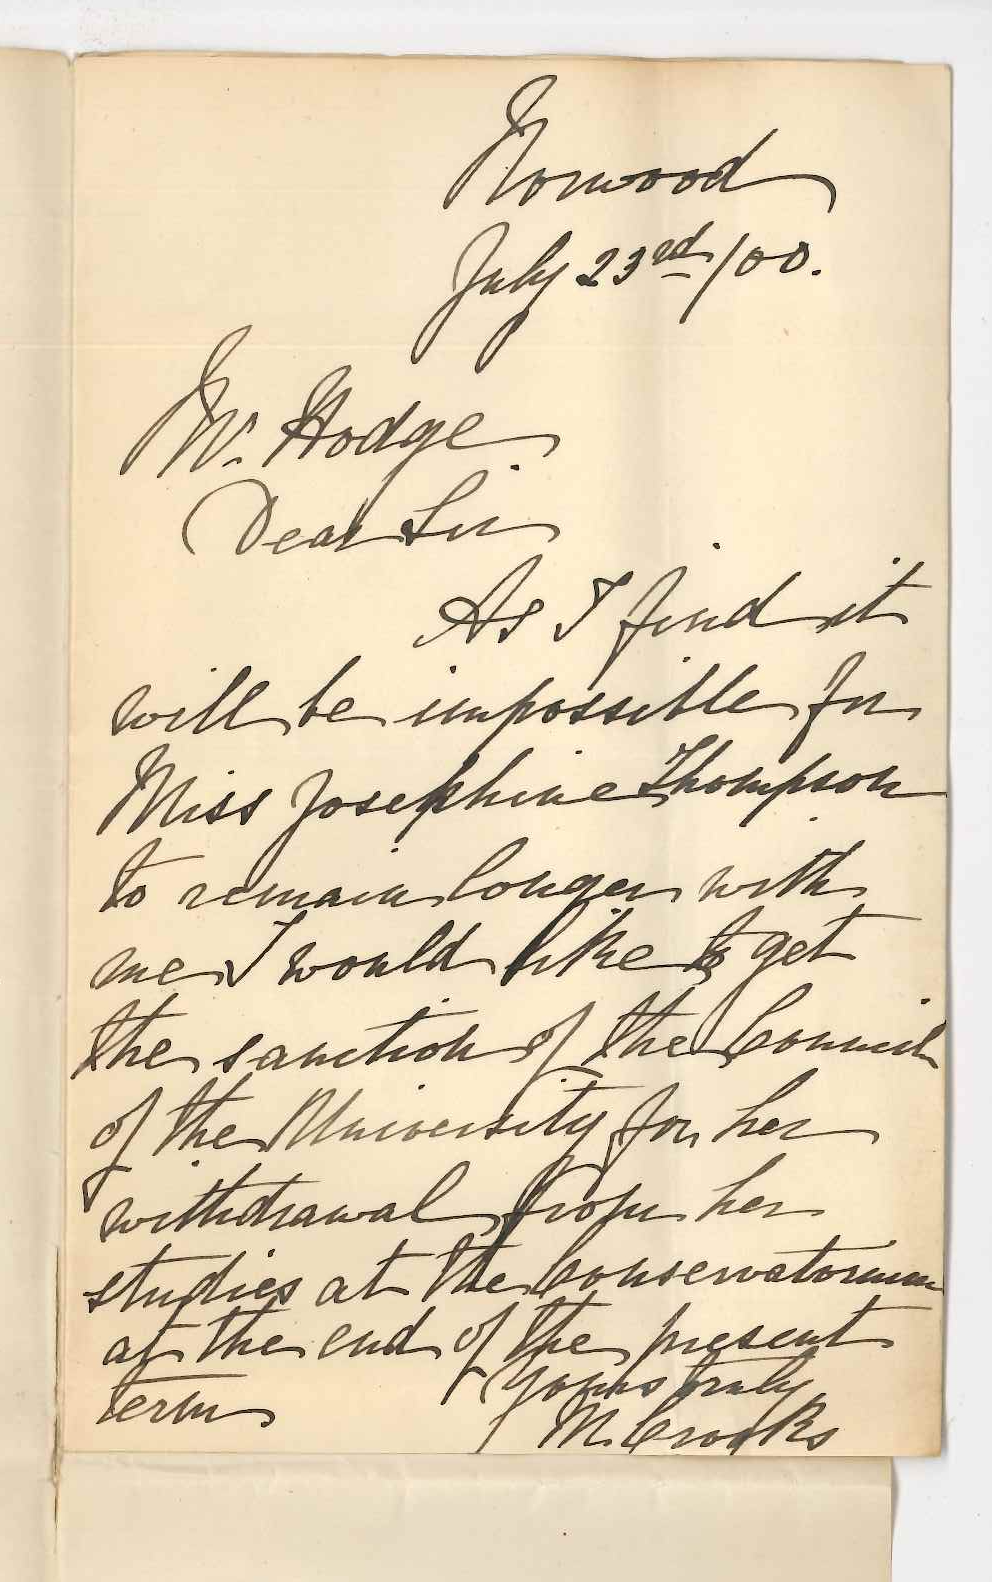 Norwood
July 23rd/00.
Mr. Hodge
Dear Sir
As I find it
will be impossible for
Miss Josephine Thompson
to remain longer with
me I would like to get
the sanction of the Council
of the University for her
withdrawal from her
studies at the Conservatorium
at the end of the present
term
Yours truly
M. Crooks